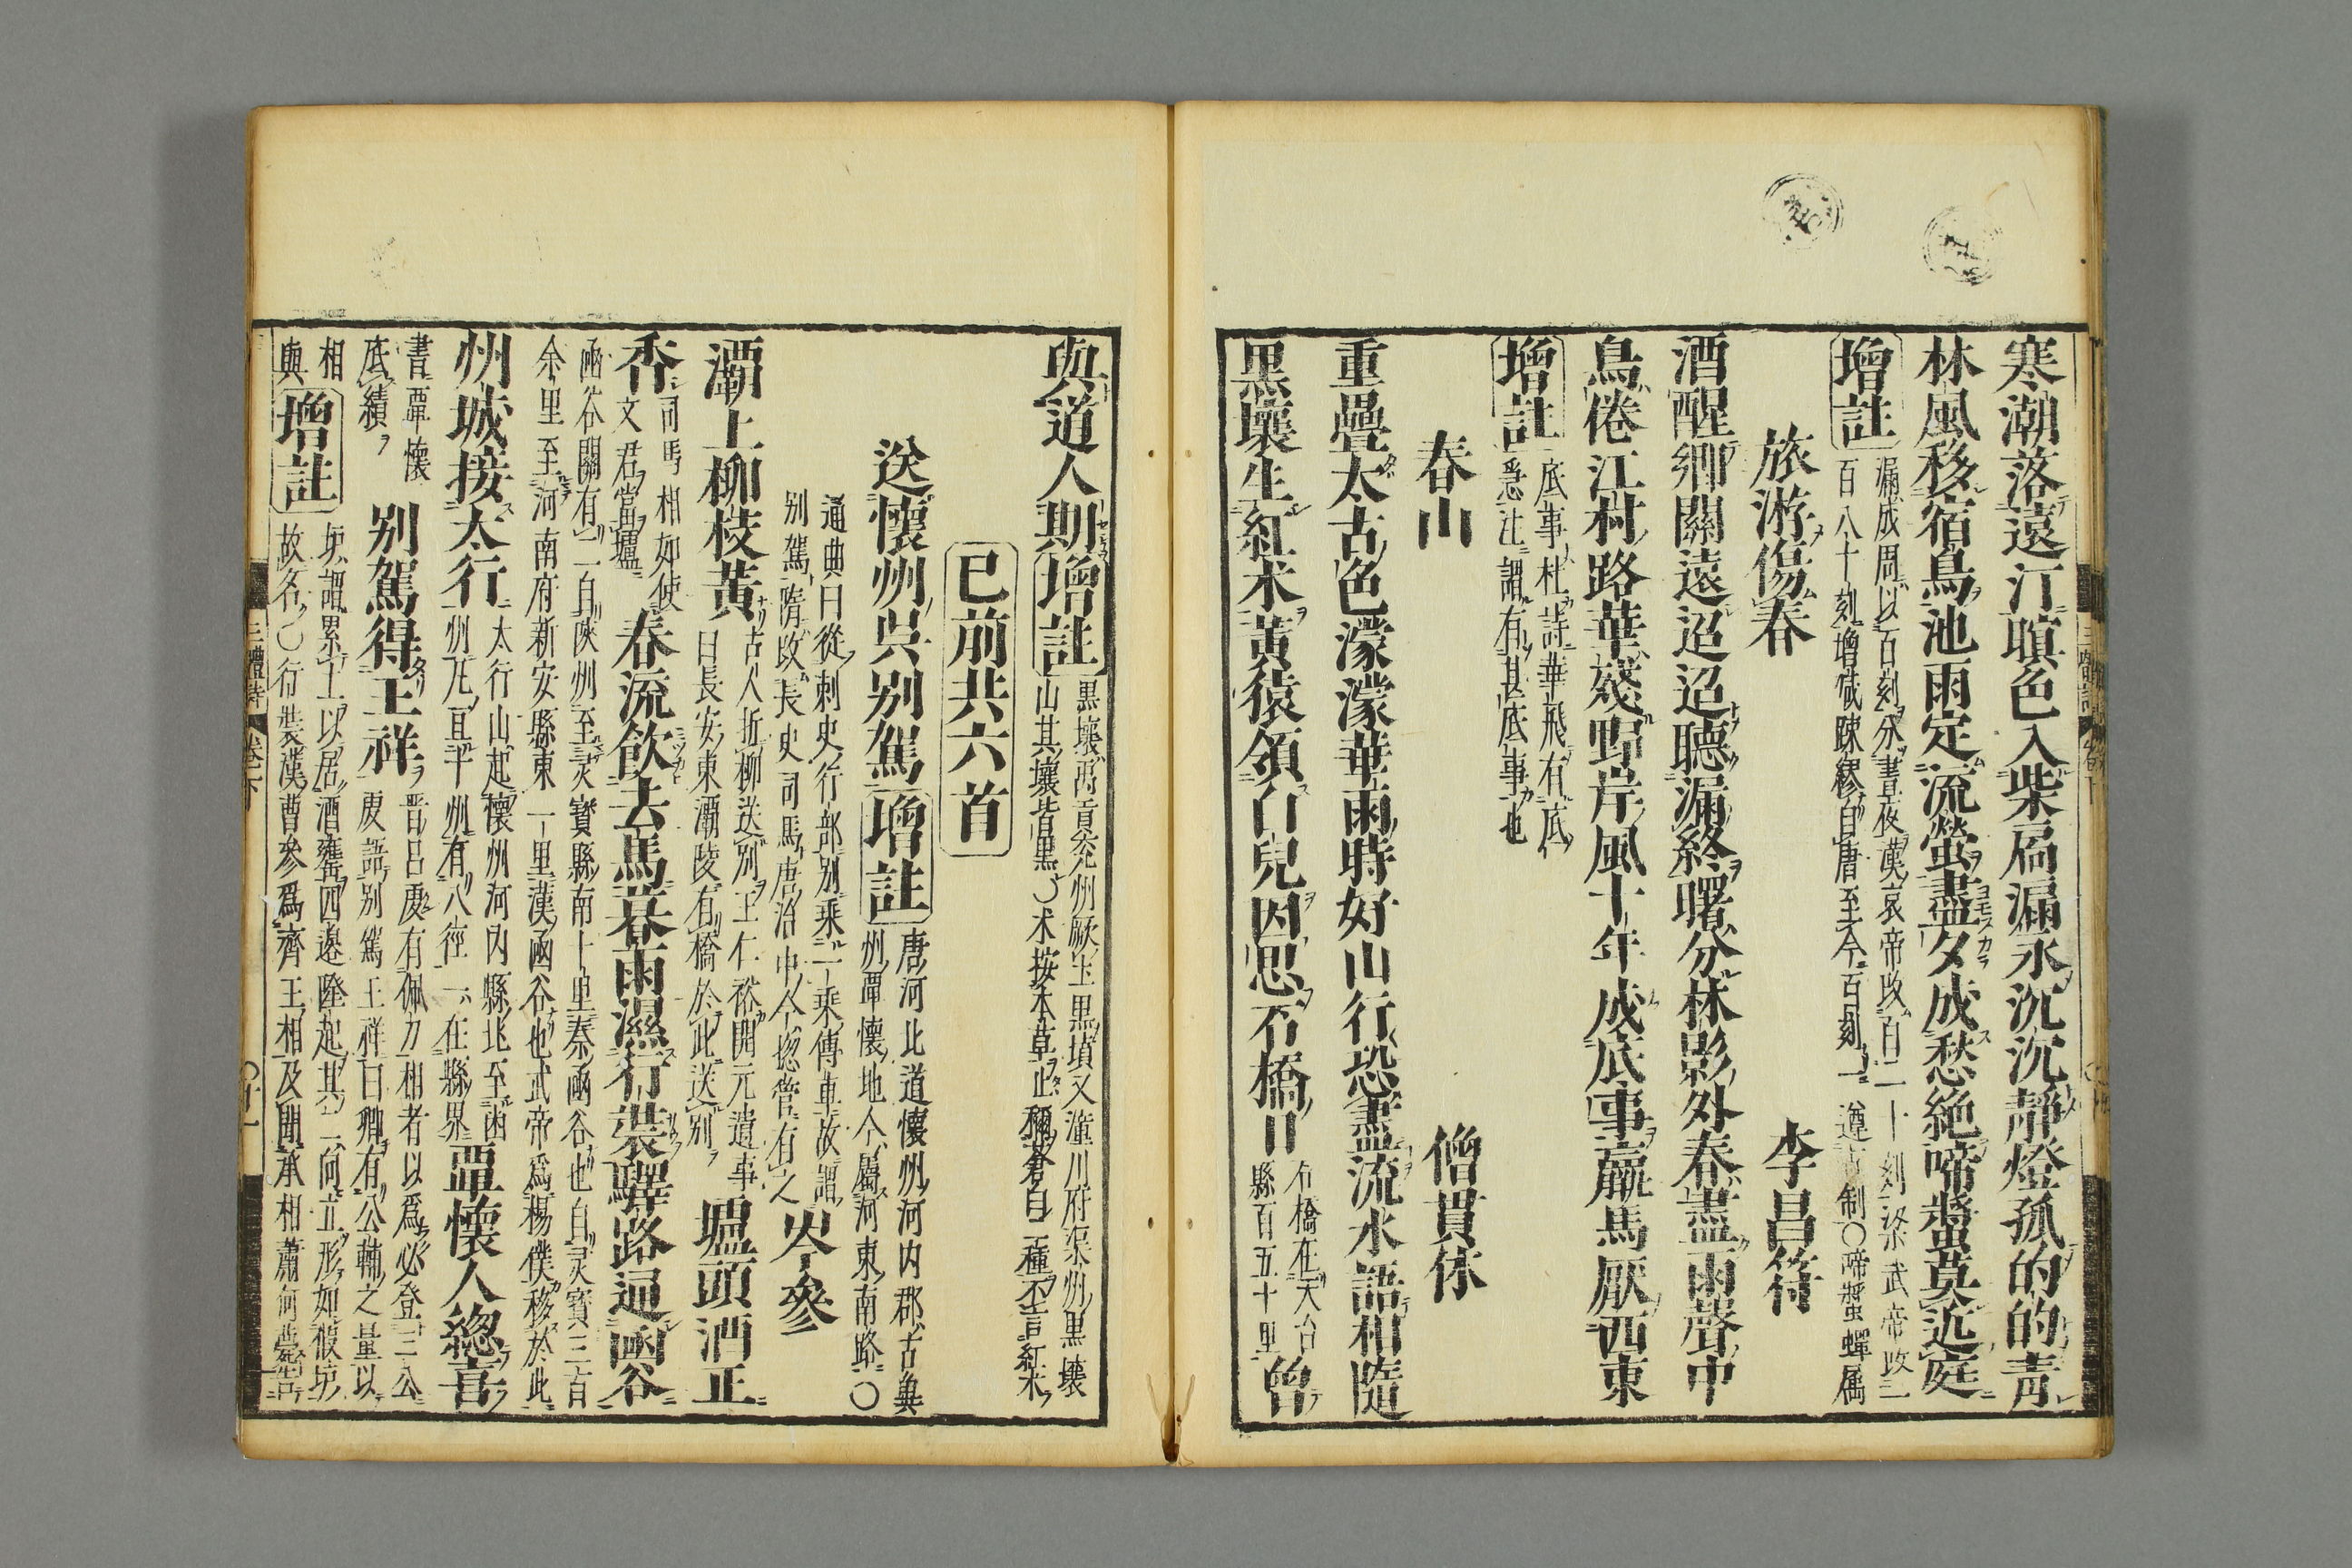 寒潮落遠汀暝色入柴扃漏永沉沉靜燈孤的的青
林風移宿鳥池雨定流螢盡夕成愁絶啼螿莫近庭
增註
漏成周以百刻分晝夜漢哀帝改百二十刻梁武帝改一
百八十刻增減踈繆自唐至今百刻一遵古制〇啼螿蟬属
旅游傷春
李昌符
酒醒鄉關遠迢迢聽漏終曙分林影外春盡雨聲中
鳥倦江村路華殘野岸風十年成底事羸馬厭西東
增註
底事杜詩華飛有底
急注謂有甚底事也
春山
僧貫休
重疊太古色濛濛華雨時好山行恐盡流水語相隨
黑壤生紅朮黃猿領白兒因思石橋日
石橋在天台
縣百五十里
曾
與道人期
增註
黑壤禹貢兖州厥土黑墳又潼川府渠州黑壤
山其壤皆黑〇朮按本草止稱蒼白二種不言紅朮
已前共六首
送懷州吳別駕
增註
唐河北道懷州河内郡古冀
州覃懷地今屬河東南路〇
通典曰從刺史行部別乘一乘傳車故謂
別駕隋改長史司馬唐治中今揔管有之
岑參
灞上柳枝黃
古人折柳送別王仁裕開元遺事
曰長安東灞陵有橋於此送別
壚頭酒正
香
司馬相如使
文君當壚
春流飲去馬暮雨濕行裝驛路通函谷
函谷關有二自陝州至灵寶縣南十里秦函谷也自灵寶三百
余里至河南府新安縣東一里漢函谷也武帝爲楊僕移於此
州城接太行
太行山起懷州河内縣北至幽
州凡亘十州有八徑一在縣界
覃懷人緫喜
書覃懷
底績
別駕得王祥
晋呂虔有佩刀相者以爲必登三公
虔語別駕王祥曰卿有公輔之量以
相
與
增註
垻謂累土以居酒甕四邊隆起其一向立形如假垻
故名〇行裝漢曹參爲齊王相及聞丞相蕭何薨告
三體詩
卷之下